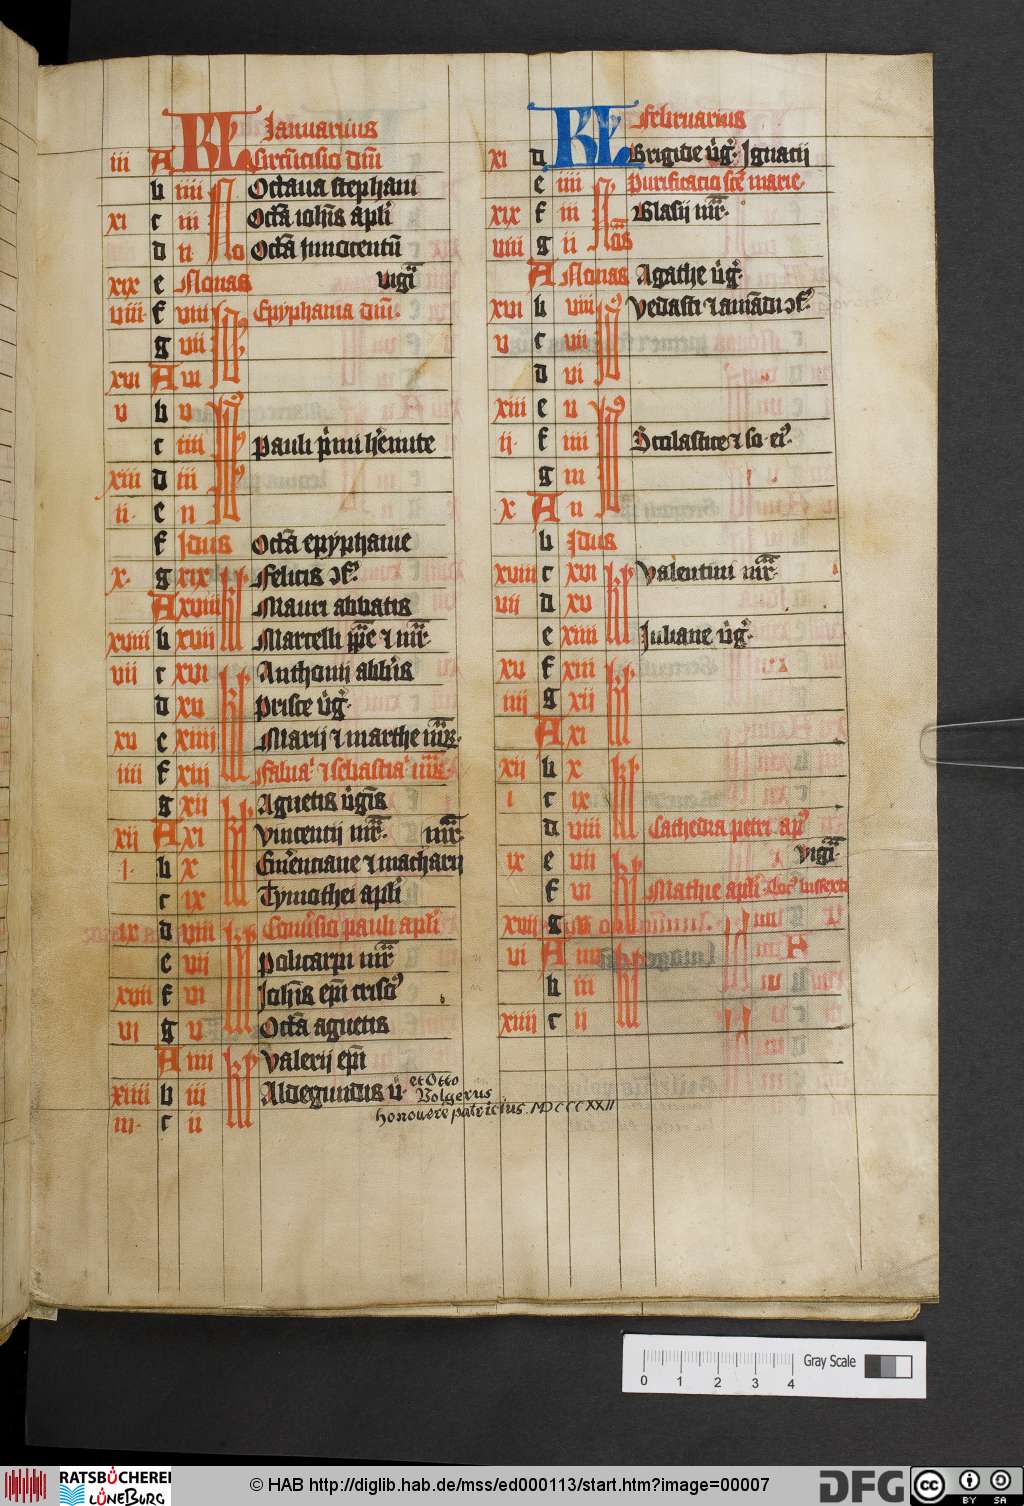 KL Januarius
iii A Circūcisio dn̄i
b iiii Octaua stephani
xi c iii Octā ioh̄is apl̓i
d ii No Octā Innocentū
xix e Nonas vigīl
viii f viii Epyphania dn̄i
g vii
xvi A vi
v b v
c iiii Pauli p̓mi h̓emite
xiii d iii
ii e ii
f Idus Octā epyphanie
x g xix kl̓ Felicis ↄf̓
A xviii Mauri abbatis
xviii b xvii Martelli pp̄e ⁊ mr̄
vii c xvi kl̓ Anthonii abb̄is
d xv Prisce v̓g̓
xv e xiiii Marii ⁊ marthe mr̄
iiii f xiii Fabiā ⁊ sebastiā mr̄
g xii kl̓ Agnetis v̓gīs
xii A xi Vincentii mr̄ mr̄
i b x Em̓enciane ⁊ macharii
c ix Tymothei apl̓i
ix d viii kl̓ Conu̓sio pauli apl̓i
e vii Policarpi mr̄
xvii f vi Joh̄is ep̄i criso
vi g v Octā agnetis
A iiii kl̓ Valerii ep̄i
xiiii b iii Aldegundis v̓ et Otto
Volgerus
iii c ii honouere patricius. MDCCCXXII
KL Februarius
xi d Brigide v̓g̓ Ignacii
e iiii Purificacio scē marie
xix f iii Blasii mr̄
viii g ii Noās
A Nonas Agathe v̓g̓
xvi b viii Vedasti ⁊ amādi ↄf̓
v c vii
d vi
xiii e v
ii f iiii Scolastice ⁊ so ei̓
g iii
x A ii
b Idus
xviii c xvi kl̓ Valentini mr̄
vii d xv
e xiiii Juliane v̓g̓
xv f xiii kl̓
iiii g xii
A xi
xii b x kl̓
i c ix
d viii Cathedra petri ap̓
ix e vii kl̓ vigīl
f vi Mathie apl̓i Loc̓ bissexti
xvii g v
vi A iiii kl̓
b iii
xiiii c ii
0 1 2 3 4 Gray Scale
RATSBÜCHEREI LÜNEBURG
© HAB http://diglib.hab.de/mss/ed000113/start.htm?image=00007
DFG
cc BY SA